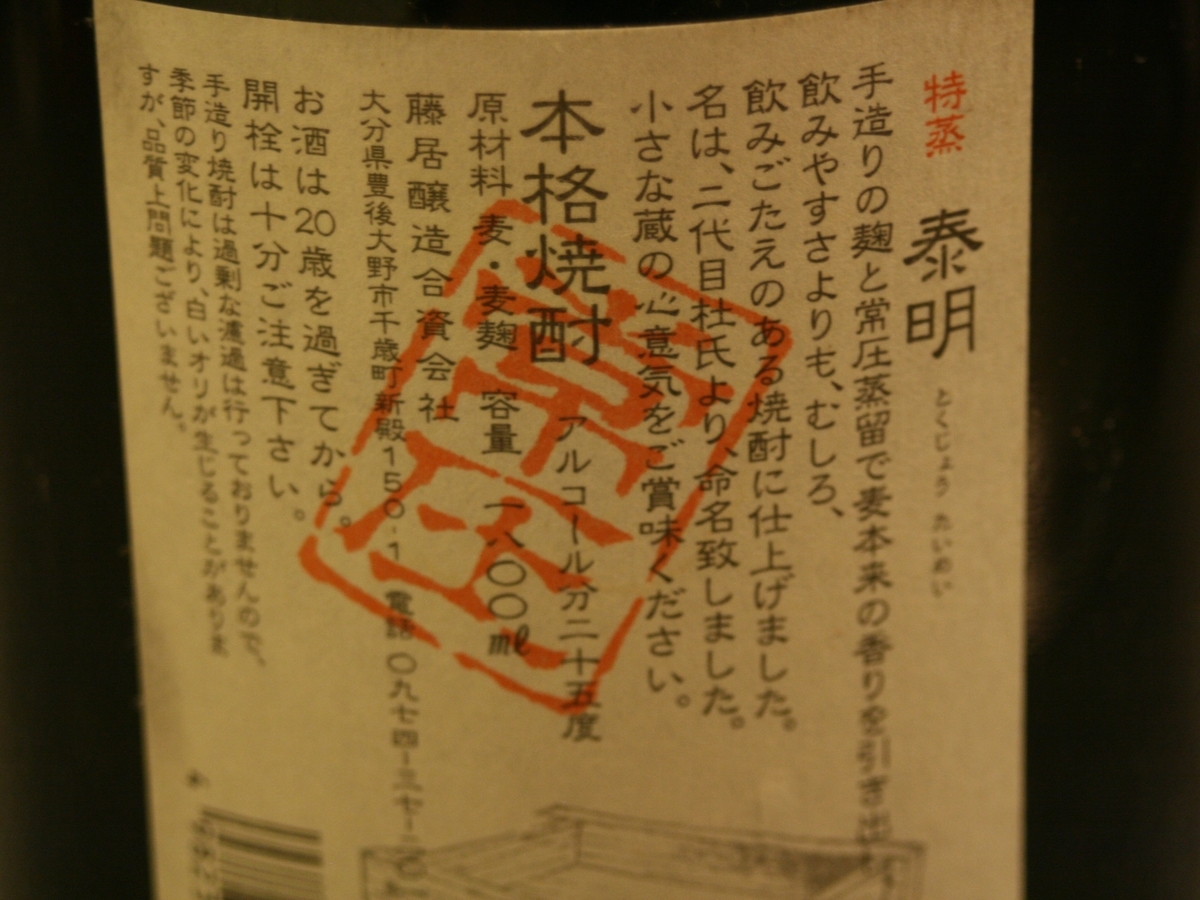 特蒸 泰明
とくじょう たいめい
手造りの麹と常圧蒸留で麦本来の香りを引き出し
飲みやすさよりも、むしろ、
飲みごたえのある焼酎に仕上げました。
名は、二代目杜氏より、命名致しました。
小さな蔵の心意気をご賞味ください。
本格焼酎 アルコール分二十五度
原材料 麦・麦麹 容量 一八〇〇ml
藤居醸造合資会社
大分県豊後大野市千歳町新殿150-1 電話 〇九七四-三七-二〇
お酒は20歳を過ぎてから。
開栓は十分ご注意下さい。
手造り焼酎は過剰な濾過は行っておりませんので、
季節の変化により、白いオリが生じることがありま
すが、品質上問題ございません。
常圧